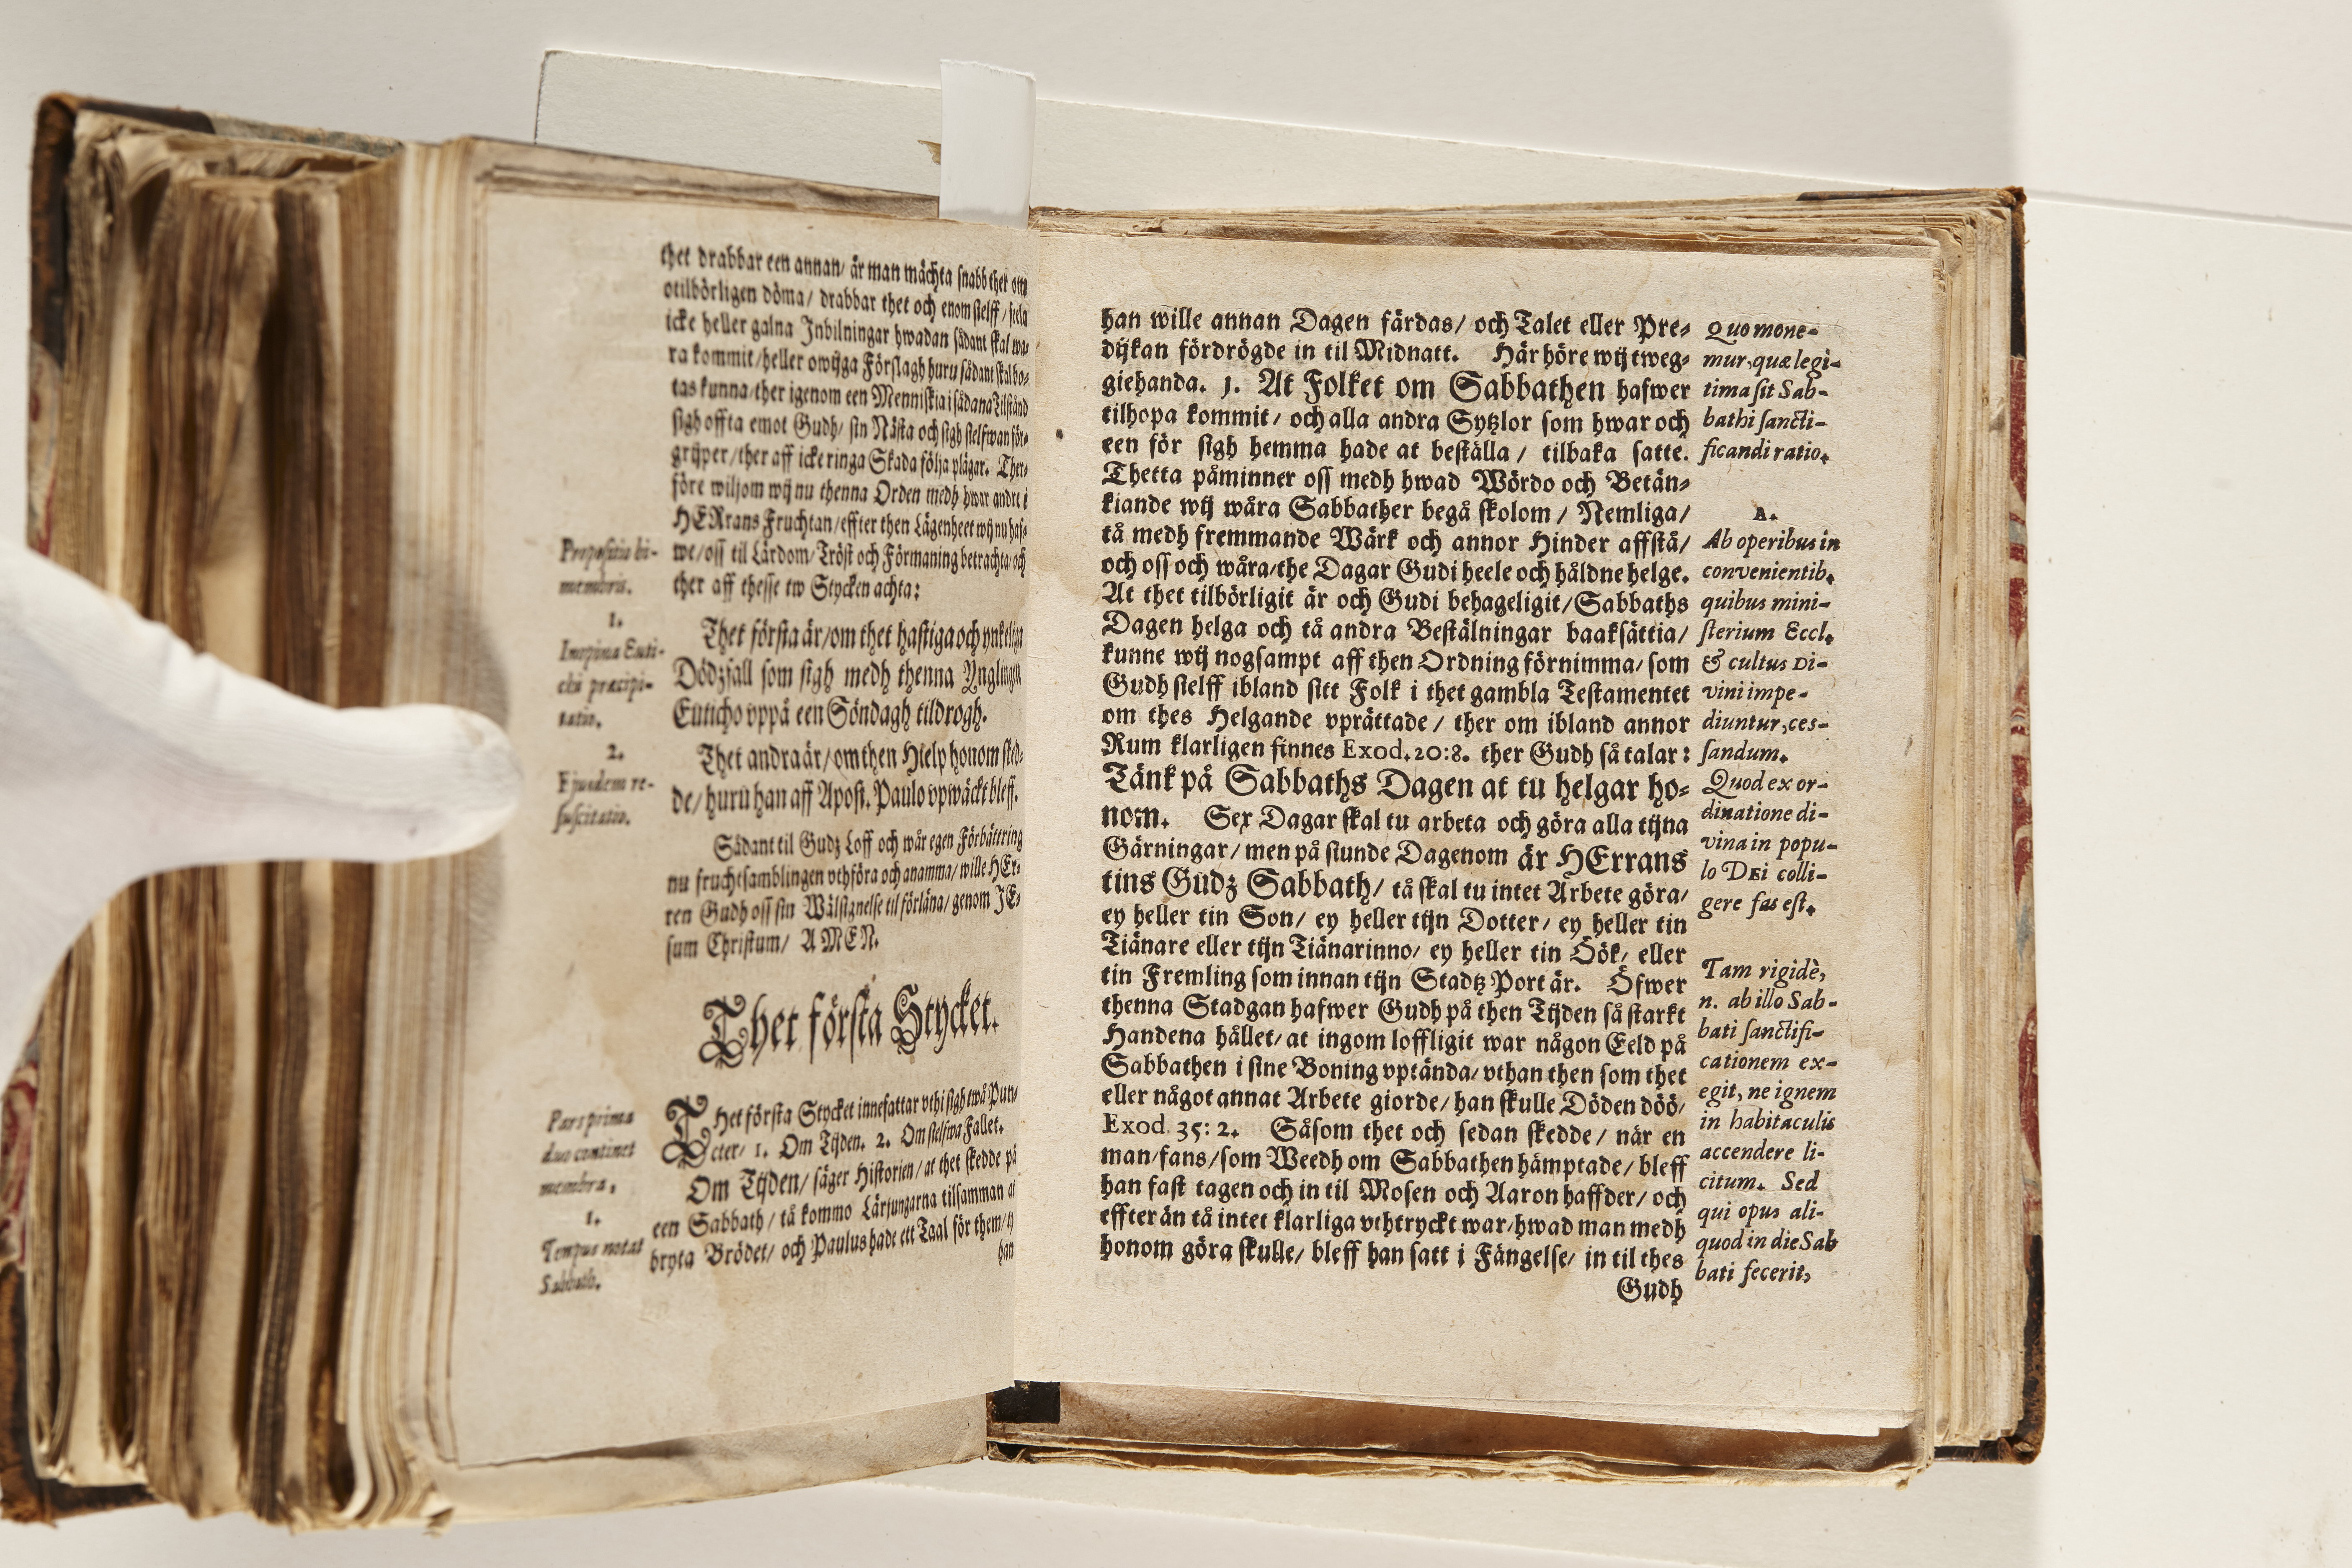 thet drabbar een annan/ är man mächta snabb thet om
otilbörligen döma/ drabbar thet och enom sielff/ seela
icke heller galna Inbilningar hwadan sådant skal wa-
ra kommit/heller owijga Förslagh huru sådant skal bo-
tas kunna/ther igenom een Menniskia i sådana Tilstånd
sigh offta emot Gudh/ sin Nästa och sigh sielf wan för-
grijper/ther aff icke ringa Skada följa plägar. Ther-
före wiljom wij nu thenna Orden medh hwar andre i
HERrans Fruchtan/effter then Lägenheet wij nu haf-
we/oss til Lärdom/Tröst och Förmaning betrachta/och
ther aff thesse tw Stycken achta:
Thet första är/om thet hastiga och ynkeliga
Dödzfall som sigh medh thenna Ynglingen
Euticho vppå een Söndagh tildrogh.
Thet andra är/om then Hielp honom sked-
de/huru han aff Apost. Paulo vpwäckt bleff.
Sådant til Gudz Loff och wår egen Förbättring
nu fruchtsamblingen vthföra och anamma/wille HEr-
ren Gudh oss sin Wälsignelse til förläna/genom JE-
sum Christum/ AMEN.
Thet första Stycket.
THet första Stycket innefattar vthi sigh twå Pun-
cter/ 1. Om Tijden. 2. Om sielfwa Fallet.
Om Tijden/ säger Historien/at thet skedde på
een Sabbath/ tå kommo Lärjungarna tilsamman at
bryta Brödet/ och Paulus hade ett Taal för them/ty
han
Propositio bi-
membris.
1.
Inopina Euti-
chi præcipi-
tatio.
2.
Ejusdem re-
suscitatio.
Pars prima
duo continet
membra.
1.
Tempus notat
Sabbath.
han wille annan Dagen färdas/ och Talet eller Pre-
dijkan fördrögde in til Midnatt. Här höre wij tweg-
giehanda. 1. At Folket om Sabbathen hafwer
tilhopa kommit/ och alla andra Sytzlor som hwar och
een för sigh hemma hade at beställa/ tilbaka satte.
Thetta påminner oss medh hwad Wördo och Betän-
kiande wij wåra Sabbather begå skolom/ Nemliga/
tå medh fremmande Wärk och annor Hinder affstå/
och oss och wåra/the Dagar Gudi heele och håldne helge.
At thet tilbörligit är och Gudi behageligit/Sabbaths
Dagen helga och tå andra Bestälningar baaksättia/
kunne wij nogsampt aff then Ordning förnimma/som
Gudh sielff ibland sitt Folk i thet gambla Testamentet
om thes Helgande vprättade/ ther om ibland annor
Rum klarligen finnes Exod. 20:8. ther Gudh så talar:
Tänk på Sabbaths Dagen at tu helgar ho-
nom. Sex Dagar skal tu arbeta och göra alla tijna
Gärningar/men på siunde Dagenom är HErrans
tins Gudz Sabbath/ tå skal tu intet Arbete göra/
ey heller tin Son/ ey heller tijn Dotter/ ey heller tin
Tiänare eller tijn Tiänarinno/ ey heller tin Öök/ eller
tin Fremling som innan tijn Stadtz Port är. Öfwer
thenna Stadgan hafwer Gudh på then Tijden så starkt
Handena hållet/at ingom loffligit war någon Eeld på
Sabbathen i sine Boning vptända/vthan then som thet
eller något annat Arbete giorde/han skulle Döden döö/
Exod. 35: 2. Såsom thet och sedan skedde/ när en
man/fans/som Weedh om Sabbathen hämptade/ bleff
han fast tagen och in til Mosen och Aaron haffder/ och
effter än tå intet klarliga vthtryckt war/hwad man medh
honom göra skulle/ bleff han satt i Fängelse/ in til thes
Gudh
Quo mone-
mur, quæ legi-
tima sit Sab-
bathi sancti-
ficandi ratio.
A.
Ab operibus in
convenientib.
quibus mini-
sterium Eccl.
& cultus Di-
vini impe-
diuntur, ces-
sandum.
Quod ex or-
dinatione di-
vina in popu-
lo DEi colli-
gere fas est.
Tam rigidè,
n. ab illo Sab-
bati sanctifi-
cationem ex-
egit, ne ignem
in habitaculis
accendere li-
citum. Sed
qui opus ali-
quod in die Sab
bati fecerit,